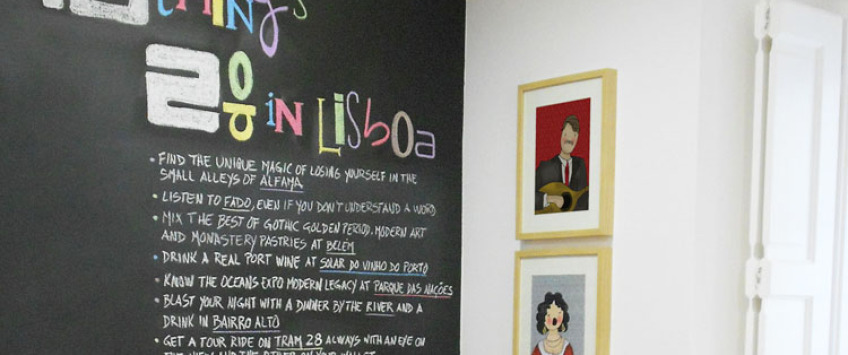 things
in Lisboa
• FIND THE UNIQUE MAGIC OF LOSING YOURSELF IN THE
SMALL ALLEYS OF ALFAMA
• LISTEN TO FADO, EVEN IF YOU DON'T UNDERSTAND A WORD
• MIX THE BEST OF GOTHIC GOLDEN PERIOD, MODERN ART
AND MONASTERY PASTRIES AT BELÉM
• DRINK A REAL PORT WINE AT SOLAR DO VINHO DO PORTO
• KNOW THE OCEANS EXPO MODERN LEGACY AT PARQUE DAS NAÇÕES
• BLAST YOUR NIGHT WITH A DINNER BY THE RIVER AND A
DRINK IN BAIRRO ALTO
• GET A TOUR RIDE ON TRAM 28 ALWAYS WITH AN EYE ON
THE VIEW AND THE OTHER ON YOUR WALLET